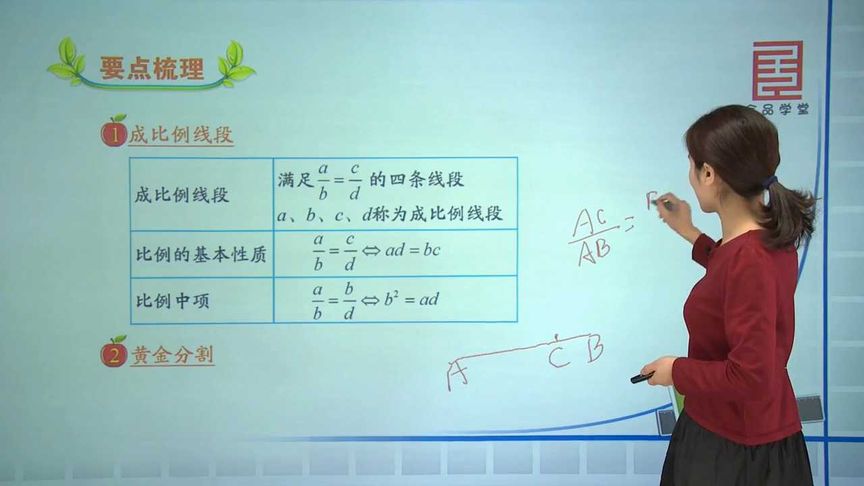 要点梳理
品学堂
1 成比例线段
成比例线段
满足 a/b = c/d 的四条线段
a、b、c、d称为成比例线段
比例的基本性质
a/b = c/d ⇔ ad = bc
比例中项
a/b = b/d ⇔ b² = ad
2 黄金分割
AC/AB =
A C B